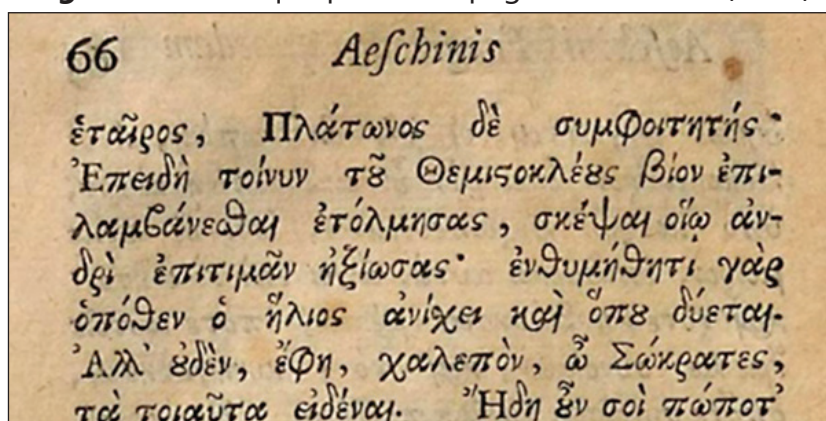 66 Aeſchinis
ἑταῖρος, Πλάτωνος δὲ συμφοιτητής·
Ἐπειδὴ τοίνυν τȣ͂ Θεμιϛοκλέȣς βίον ἐπι-
λαμβάνεσθαι ἐτόλμησας, σκέψαι οἵῳ ἀν-
δρὶ ἐπιτιμᾶν ἠξίωσας· ἐνθυμήθητι γὰρ
ὁπόθεν ὁ ἥλιος ἀνίχει καὶ ὅπȣ δύεται.
Ἀλλ' ȣ̓δὲν, ἔφη, χαλεπὸν, ὦ Σώκρατες,
τὰ τοιαῦτα εἰδέναι. Ἤδη ȣ̓͂ν σοὶ πώποτ'